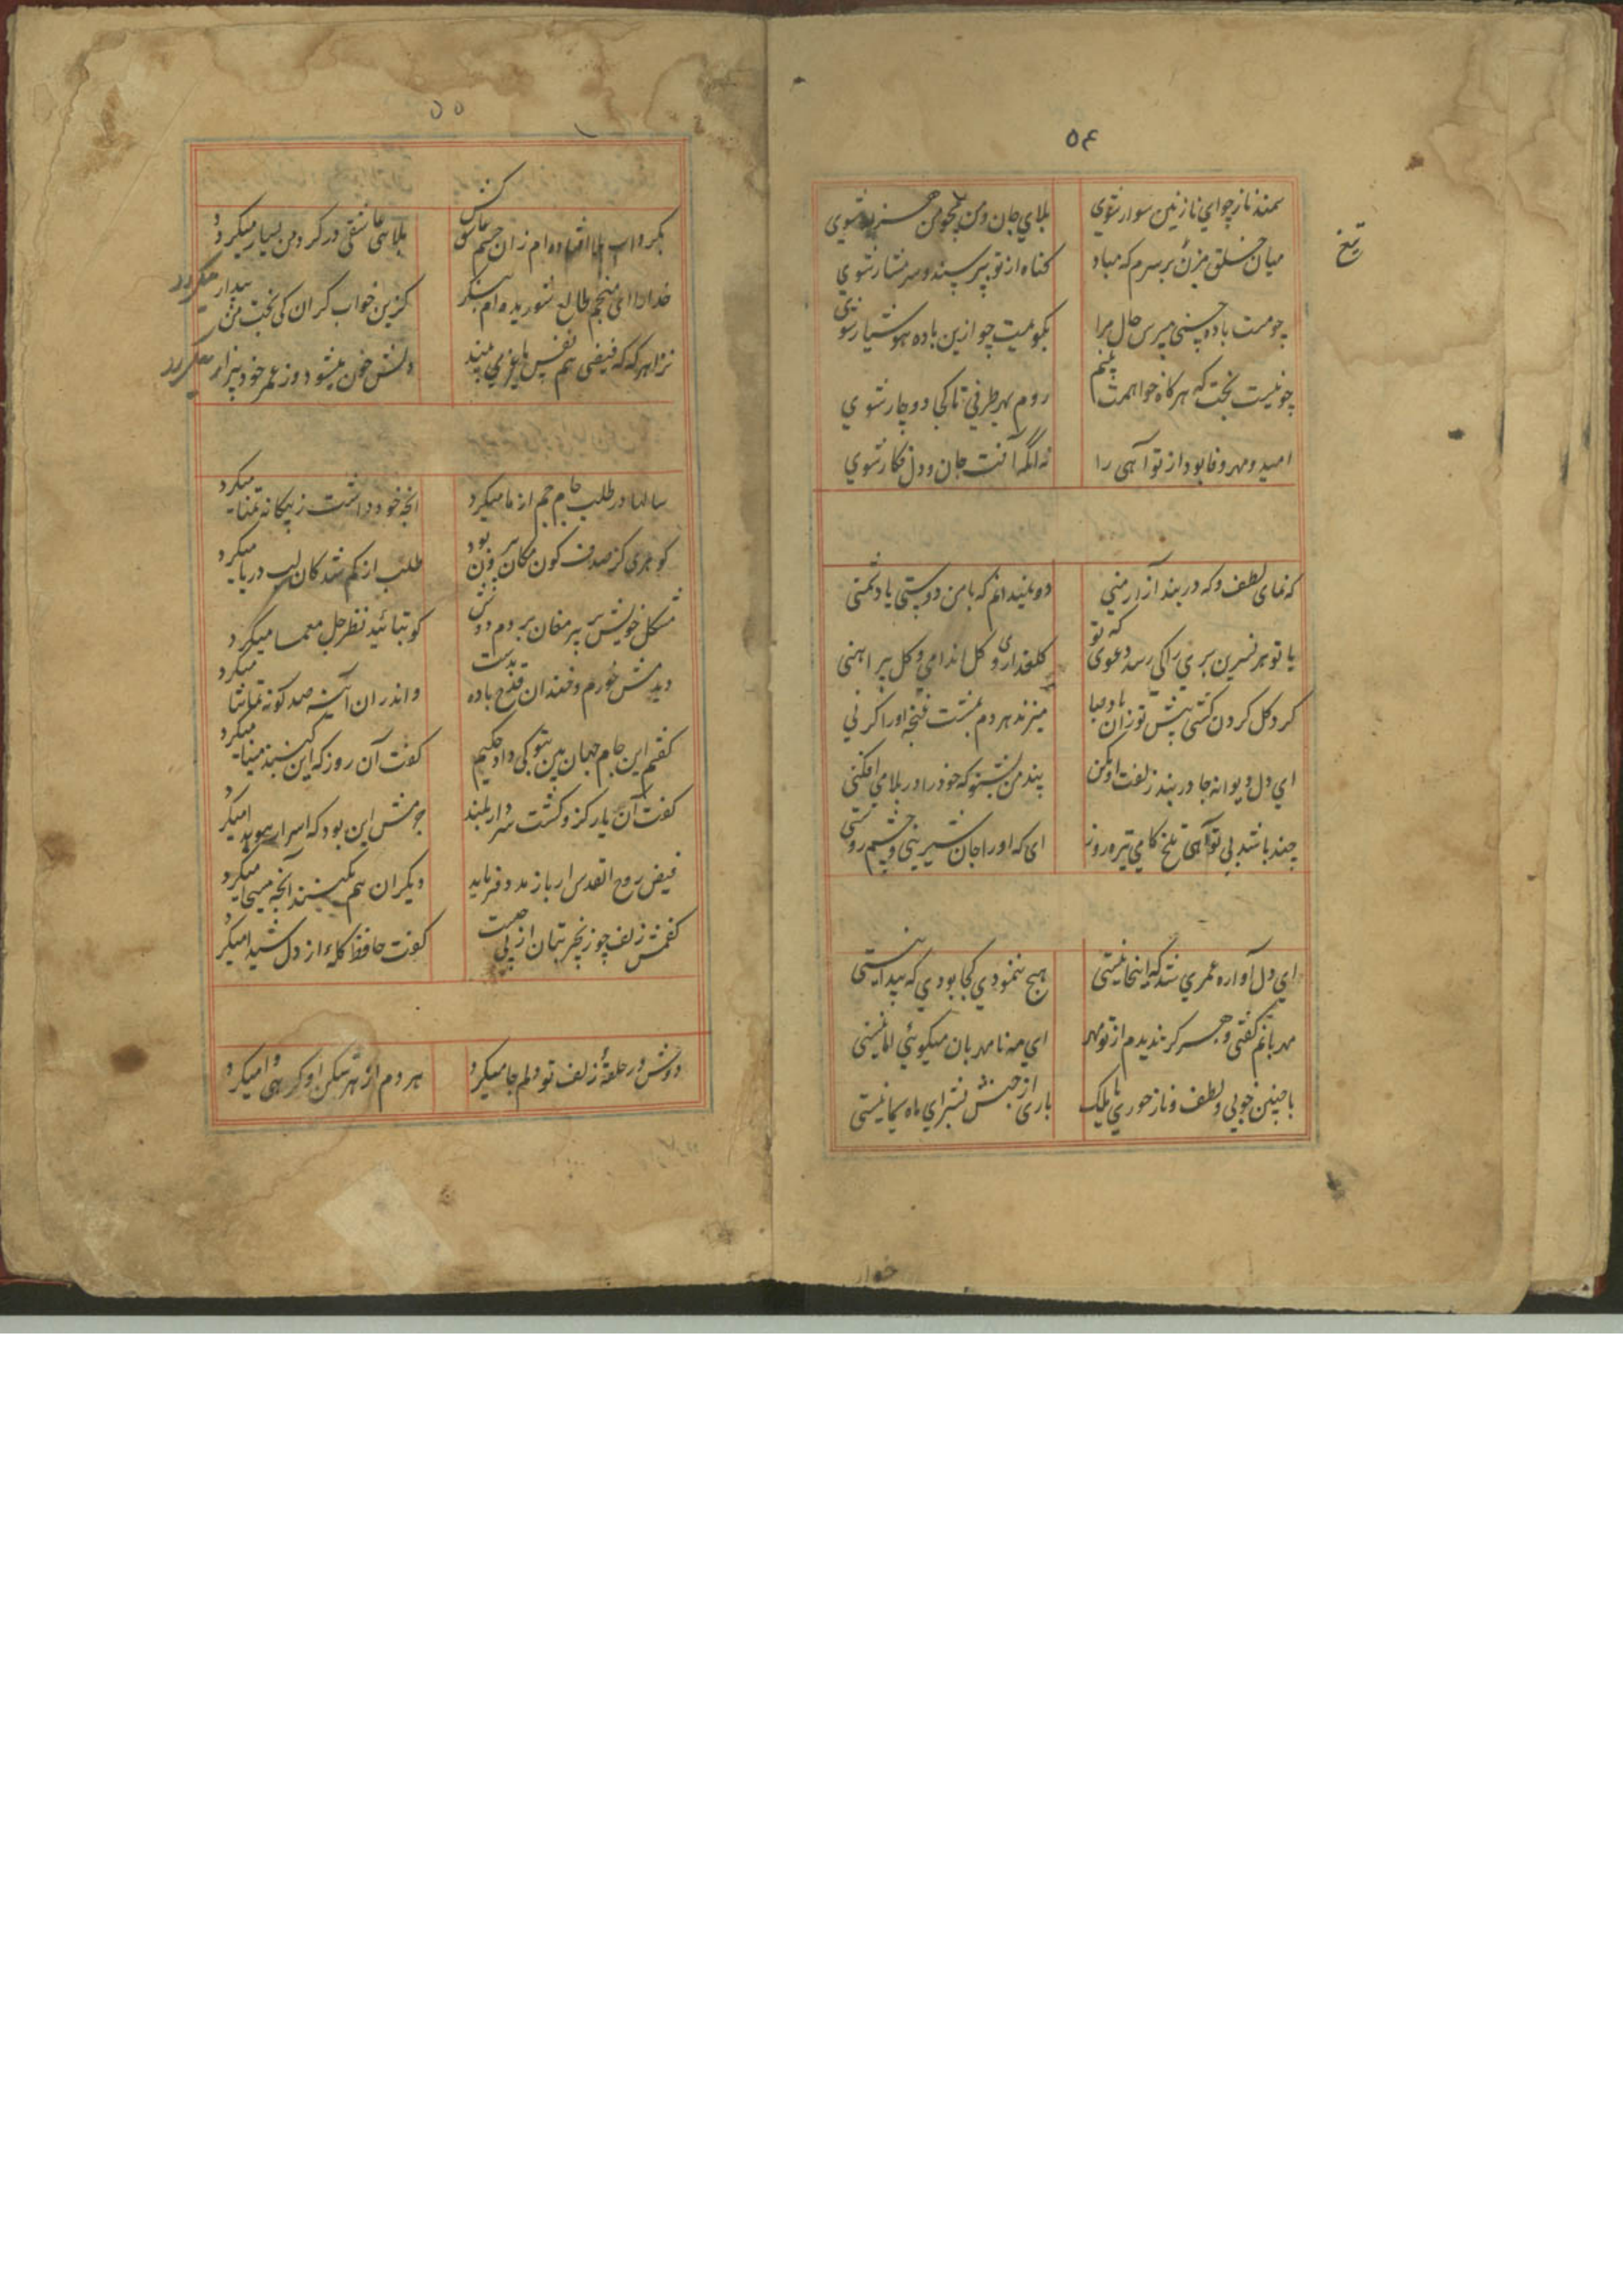 ٥٤
سمند ناز چو ای نازنین سوار شوی بلای جان من
میان خلق مزن بر سرم که مباد تیغ
کناه از تو بپرسند و شرمسار شوی
چو مست باده حسنی مپرس حال مرا بکویمت چو ازین باده هوشیار شوی
چو نیست بخت که هرکاه خواهمت بینم روم بهر طرفی تا کجا دوچار شوی
امید و مهر و وفا بود از تو آهی را نه آنکه آفت جان و دل فکار شوی
که نمای لطف و که در بند آزار منی من دوستی یا دشمنی
با تو هر نسرین بری را کی رسد دعوی که تو کلعذاری و کل اندامی و کل پیراهنی
کرد کل کردن کشی پیش تو زان باد صبا میزند هر دم
ای دل دیوانه جا در بند زلف او مکن پند من بشنو که خود را در بلا می افکنی
چند باشد بی تو آهی تلخ کامی تیره روز ای که او را جان شیرینی و چشم روشنی
ای دل آواره عمری شد که اینجا نیستی هیچ ننمودی کجا بودی که پیدا نیستی
مهربانم کفتی و هرکز ندیدم از تو مهر ای مه نامهربان میکوئی اما نیستی
با چنین خوبی و لطف و ناز حوری یا ملک باری از جنس بشر ای ماه یکتا نیستی
٥٥
بکرداب بلا افتاده ام زان چشم بلاهی عاشقی در کردن بسیار میکرد
خدا را ای منجم طالع شوریده ام بنکر کزین خواب کران کی بخت من بیدار میکردد
هر که که فیضی هم نفس با غیر می بیند دلش خون میشود وز عمر خود بیزار میکردد
سالها در طلب جام جم از ما میکرد انچه خود داشت ز بیکانه تمنا میکرد
کوهری کز صدف کون مکان بیرون بود طلب از کم شدکان لب دریا میکرد
مشکل خویش بر پیر مغان بردم دوش کو بتائید نظر حل معما میکرد
دیدمش خورم و خندان قدح باده بدست و اندران آینه صد کونه تماشا میکرد
کفتم این جام جهان بین بتو کی داد حکیم کفت آن روز که این کنبد مینا میکرد
کفت آن یار کزو کشت سر دار بلند جرمش این بود که اسرار هویدا میکرد
فیض روح القدس ار باز مدد فرماید دیکران هم بکنند آنچه مسیحا میکرد
کفتمش زلف چو زنجیر بتان از پی چیست کفت حافظ کلهٔ از دل شیدا میکرد
دوش در حلقهٔ زلف تو دلم جا میکرد هر دم